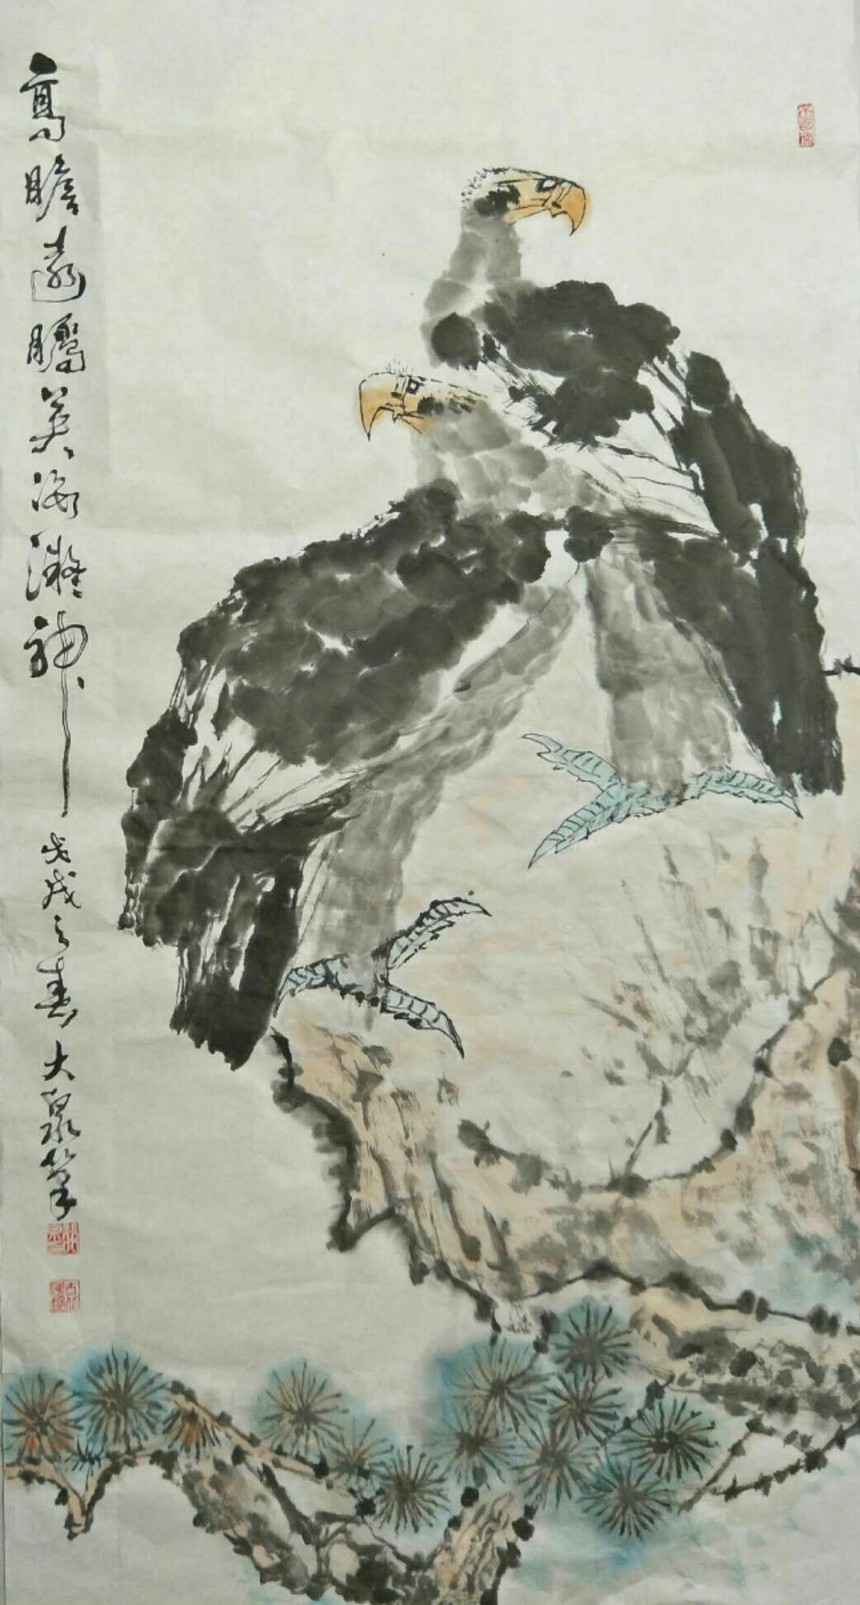 高瞻遠矚英海凝神
戊戌之春大泉筆